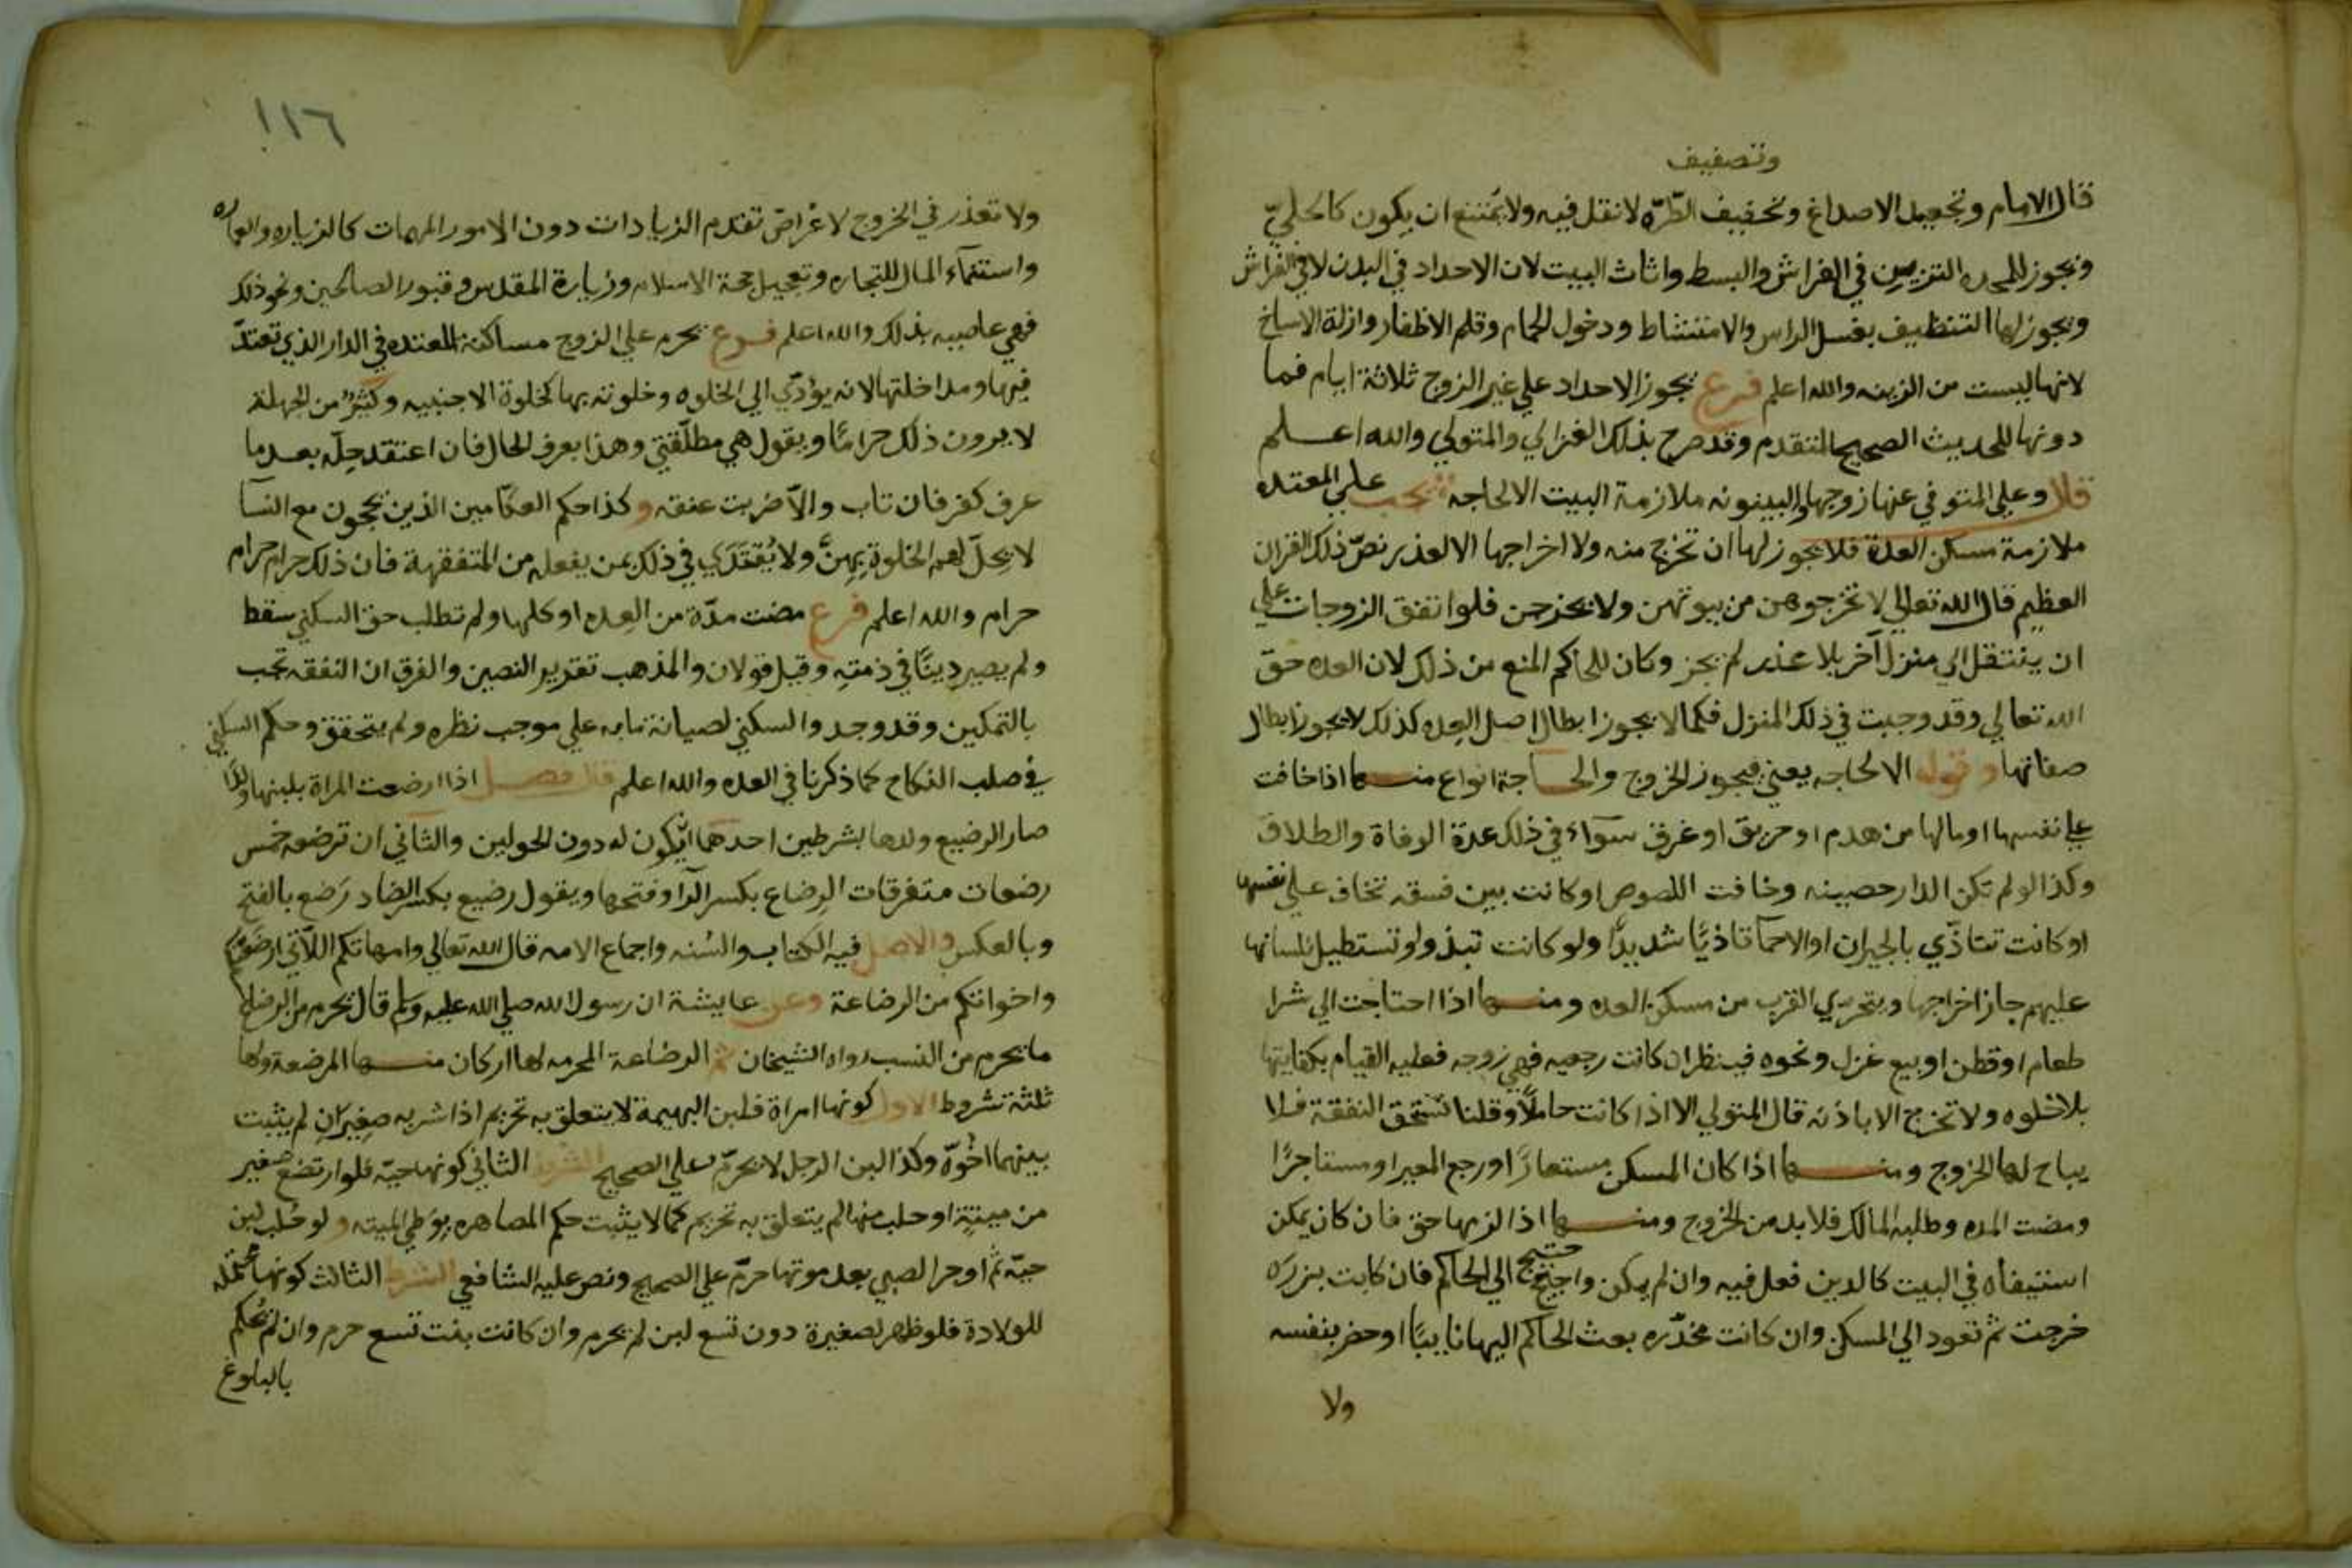 وتصفيف
قال الامام وتجعيد الاصداغ وتخفيف الطّرّه لا نقل فيه ولا يُمتنع ان يكون كالحليّ
ويجوز للمحده التزيين في الفراش والبسط واثاث البيت لان الاحداد في البدن لا في الفراش
ويجوز لها التنظيف بغسل الراس والامتشاط ودخول الحمام وقلم الاظفار وازلة الاساخ
لانها ليست من الزينه والله اعلم فرع يجوز الاحداد علي غير الزوج ثلاثة ايام فما
دونها للحديث الصحيح المتقدم وقد صرح بذلك الغزالي والمتولي والله اعلم
قال وعلي المتوفي عنها زوجها والبينونه ملازمة البيت الا لحاجه يجب علي المعتده
ملازمة مسكن العدة فلا يجوز لها ان تخرج منه ولا اخراجها الا لعذر نصّ ذلك القران
العظيم قال الله تعالي لا تخرجوهن من بيوتهن ولا يخرجن فلوا تفق الزوجات علي
ان ينتقل الي منزل آخر بلا عذر لم يجز وكان للحاكم المنع من ذلك لان العده حق
الله تعالي وقد وجبت في ذلك المنزل فكما لا يجوز ابطال اصل العده كذلك لا يجوز ابطال
صفاتها وقوله الا لحاجه يعني فيجوز الخروج والحاجة انواع منها اذا خافت
علي نفسها او مالها من هدم او حريق او غرق سوآء في ذلك عدة الوفاة والطلاق
وكذا لو لم تكن الدار حصينه وخافت اللصوص او كانت بين فسقه تخاف علي نفسها
او كانت تتاذّي بالجيران او الاحمآ تاذيًا شديدًا ولو كانت تبذوا وتستطيل بلسانها
عليهم جاز اخراجها ويتحري القرب من مسكن العده ومنها اذا احتاجت الي شرا
طعام او قطن او بيع غزل ونحوه فينظر ان كانت رجعيه فهي زوجه فعليه القيام بكفايتها
بلا خلوه ولا تخرج الا باذنه قال المتولي الا اذا كانت حاملًا وقلنا تستحق النفقة فلا
يباح لها الخروج ومنها اذا كان المسكن مستعارًا ورجع المعير او مستاجرًا
ومضت المده وطلبه المالك فلا بد من الخروج ومنها اذا لزمها حق فان كان يمكن
استيفاه في البيت كالدين فعل فيه وان لم يمكن واحتيج الي الحاكم فان كانت برزه
خرجت ثم تعود الي المسكن وان كانت مخدّره بعث الحاكم اليها نايبًا او حضر بنفسه
ولا
١١٦
ولا تعذر في الخروج لاغراض تقدم الزيادات دون الامور المهمات كالزياره والعماره
واستنمآء المال للتجاره وتعجيل حجة الاسلام وزيارة المقدس وقبور الصالحين ونحو ذلك
فهي عاصيه بذلك والله اعلم فرع يحرم علي الزوج مساكنة المعتده في الدار الذي تعتدّ
فيها ومداخلتها لانه يؤدّي الي الخلوه وخلوته بها كخلوة الاجنبيه وكثيرٌ من الجهلة
لا يرون ذلك حرامًا ويقول هي مطلّقتي وهذا يعرف الحال فان اعتقد حِلّه بعد ما
عرف كفر فان تاب والّا ضربت عنقه وكذا حكم العكّامين الذين يحجون مع النسآ
لا يحلّ لهم الخلوة بهِنَّ ولا يُقتَدَي في ذلك بمن يفعله من المتفقهة فان ذلك حرام حرام
حرام والله اعلم فرع مضت مدّة من العده او كلها ولم تطلب حق السكني سقط
ولم يصير دينًا في ذمتِه وقيل قولان والمذهب تقرير النصين والفرق ان النفقه تجب
بالتمكين وقد وجد والسكني لصيانة مايه علي موجب نظره ولم يتحقق وحكم السكني
في صلب النكاح كما ذكرنا في العده والله اعلم قال فصل اذا ارضعت المراة بلبنها ولدًا
صار الرضيع ولدها بشرطين احدهما ان يكون له دون الحولين والثاني ان ترضعه خمس
رضعات متفرقات الرِضاع بكسر الرآ وفتحها ويقول رضيع بكسر الضاد رَضع بالفتح
وبالعكس والاصل فيه الكتاب والسُنه واجماع الامه قال الله تعالي وامهاتكم اللّاتي ارضعنكم
واخواتكم من الرضاعة وعن عايشة ان رسول الله صلي الله عليه وسلم قال يحرم من الرضاع
ما يحرم من النسب رواه الشيخان ثم الرضاعة المحرمه لها اركان منها المرضعة ولها
ثلثة شروط الاول كونها امراة فلبن البهيمة لا يتعلق به تحريم اذا شربه صغِيرَانِ لم يثبت
بينهما اخُوّة وكذا لبن الرجل لا يحرّم علي الصحيح الشرط الثاني كونها حيّه فلوا رتضع صغير
من ميتةٍ او حلب منها لم يتعلق به تحريم كما لا يثبت حكم المصاهره بِوَطي الميته ولو حُلب لبن
حيّه ثم اوجر الصبي بعد موتها حرّم علي الصحيح ونص عليه الشافعي الشرط الثالث كونها محتمله
للولادة فلو ظهر لصغيرة دون تسع لبن لم يحرم وان كانت بنت تسع حرم وان لم يُحكم
بالبلوغ